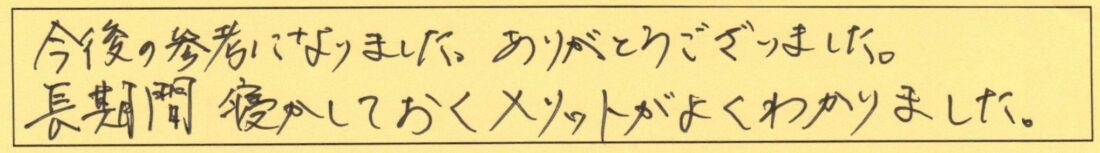 今後の参考になりました。ありがとうございました。
長期間 寝かしておくメリットがよくわかりました。